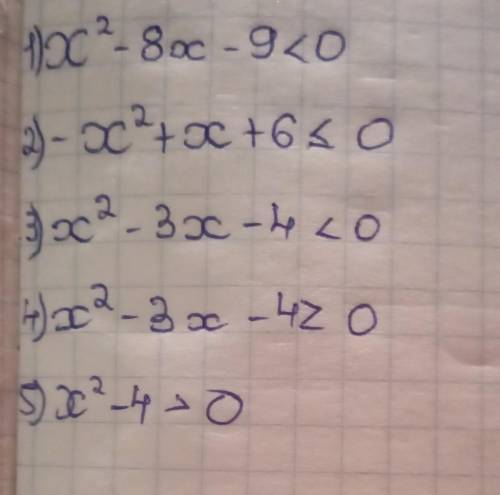 1) x² - 8x - 9 < 0
2) - x² + x + 6 ≤ 0
3) x² - 3x - 4 < 0
4) x² - 3x - 4 ≥ 0
5) x² - 4 > 0